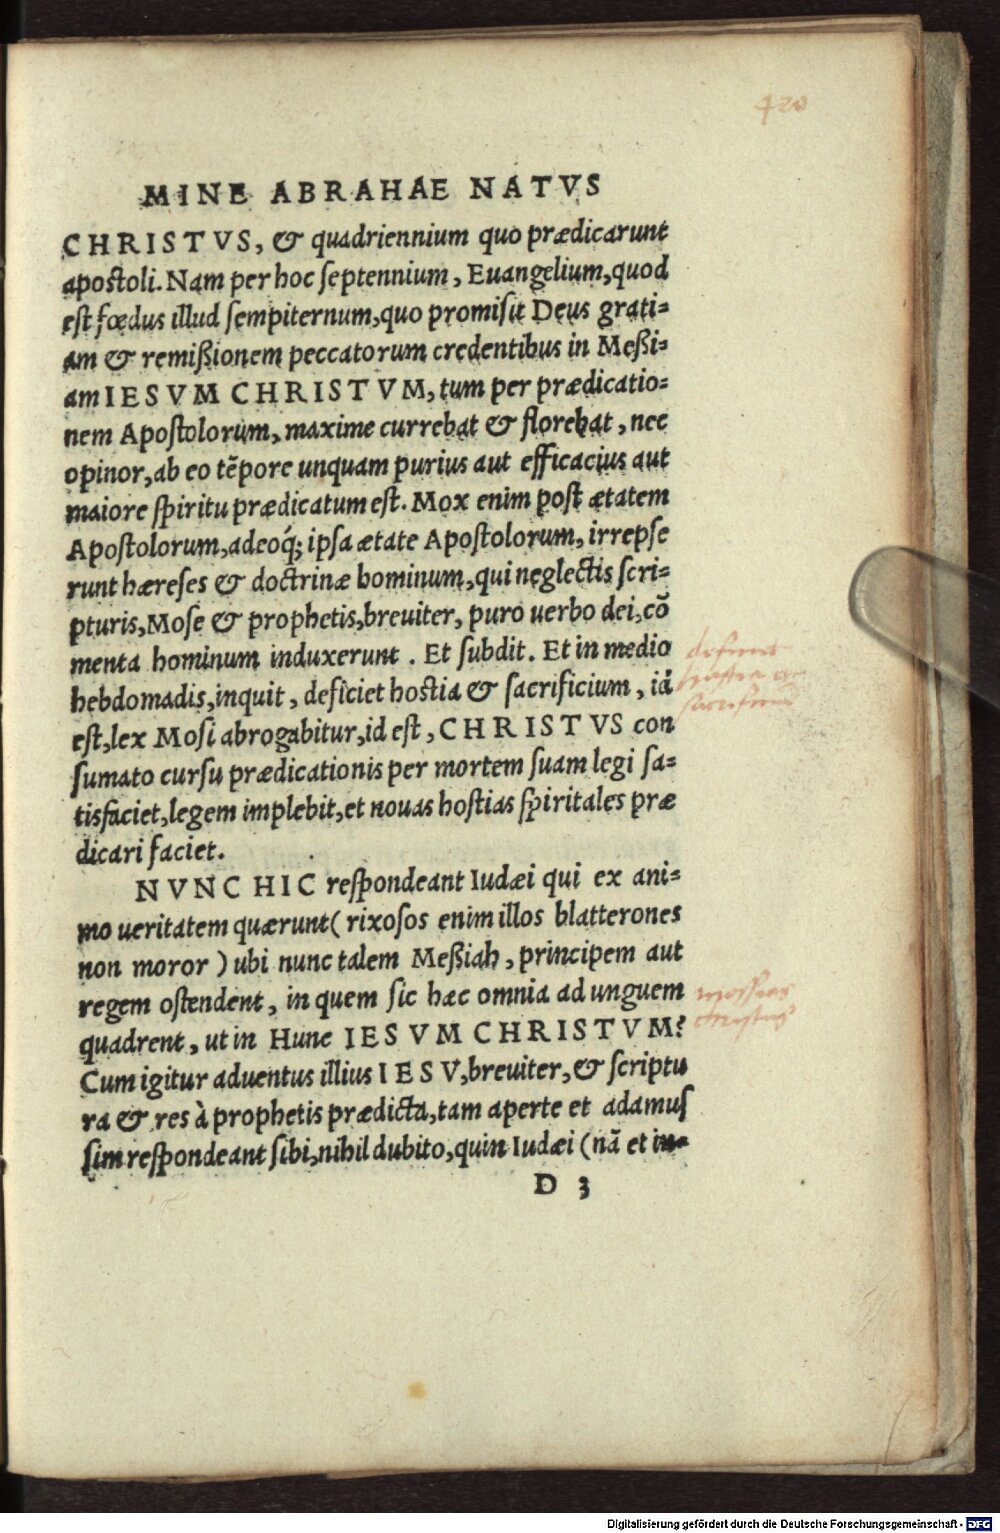 420
MINE ABRAHAE NATVS
CHRISTVS, & quadriennium quo prædicarunt
apostoli. Nam per hoc ſeptennium, Euangelium, quod
eſt fœdus illud ſempiternum, quo promiſit Deus grati⸗
am & remißionem peccatorum credentibus in Meßi⸗
am IESVM CHRISTVM, tum per prædicatio⸗
nem Apoſtolorum, maxime currebat & florebat, nec
opinor, ab eo tẽpore unquam purius aut efficacius aut
maiore ſpiritu prædicatum eſt. Mox enim poſt ætatem
Apoſtolorum, adeoq́; ipſa ætate Apoſtolorum, irrepſe
runt hæreſes & doctrinæ hominum, qui neglectis ſcri⸗
pturis, Moſe & prophetis, breuiter, puro uerbo dei, cõ
menta hominum induxerunt. Et ſubdit. Et in medio
hebdomadis, inquit, deficiet hoſtia & ſacrificium, id
eſt, lex Moſi abrogabitur, id eſt, CHRISTVS con
ſumato curſu prædicationis per mortem ſuam legi ſa⸗
tisfaciet, legem implebit, et nouas hoſtias ſpiritales præ
dicari faciet.
NVNC HIC reſpondeant Iudæi qui ex ani⸗
mo ueritatem quærunt (rixoſos enim illos blatterones
non moror) ubi nunc talem Meßiah, principem aut
regem oſtendent, in quem ſic hæc omnia ad unguem
quadrent, ut in Hunc IESVM CHRISTVM?
Cum igitur aduentus illius IESV, breuiter, & ſcriptu
ra & res à prophetis prædicta, tam aperte et adamuſ
ſim reſpondeant ſibi, nihil dubito, quin Iudæi (nã et in⸗
D 3
messias
christus
Digitalisierung gefördert durch die Deutsche Forschungsgemeinschaft - DFG